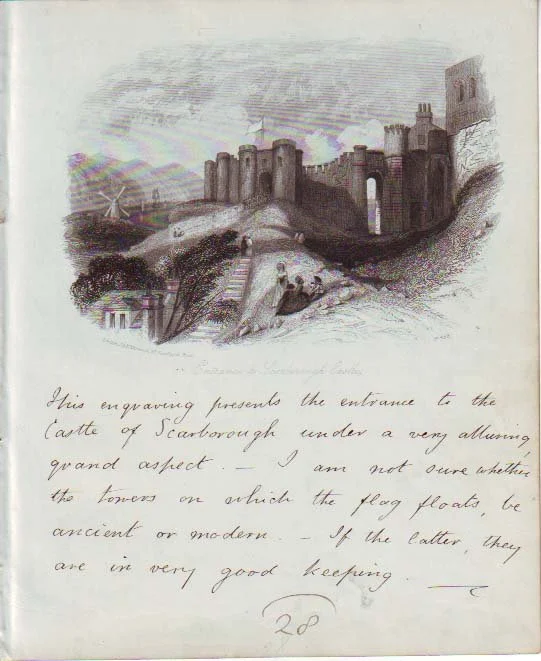 Entrance to Scarborough Castle.
This engraving presents the entrance to the
Castle of Scarborough under a very alluring,
grand aspect. — I am not sure whether
the towers on which the flag floats, be
ancient or modern. — If the latter, they
are in very good keeping. —
28